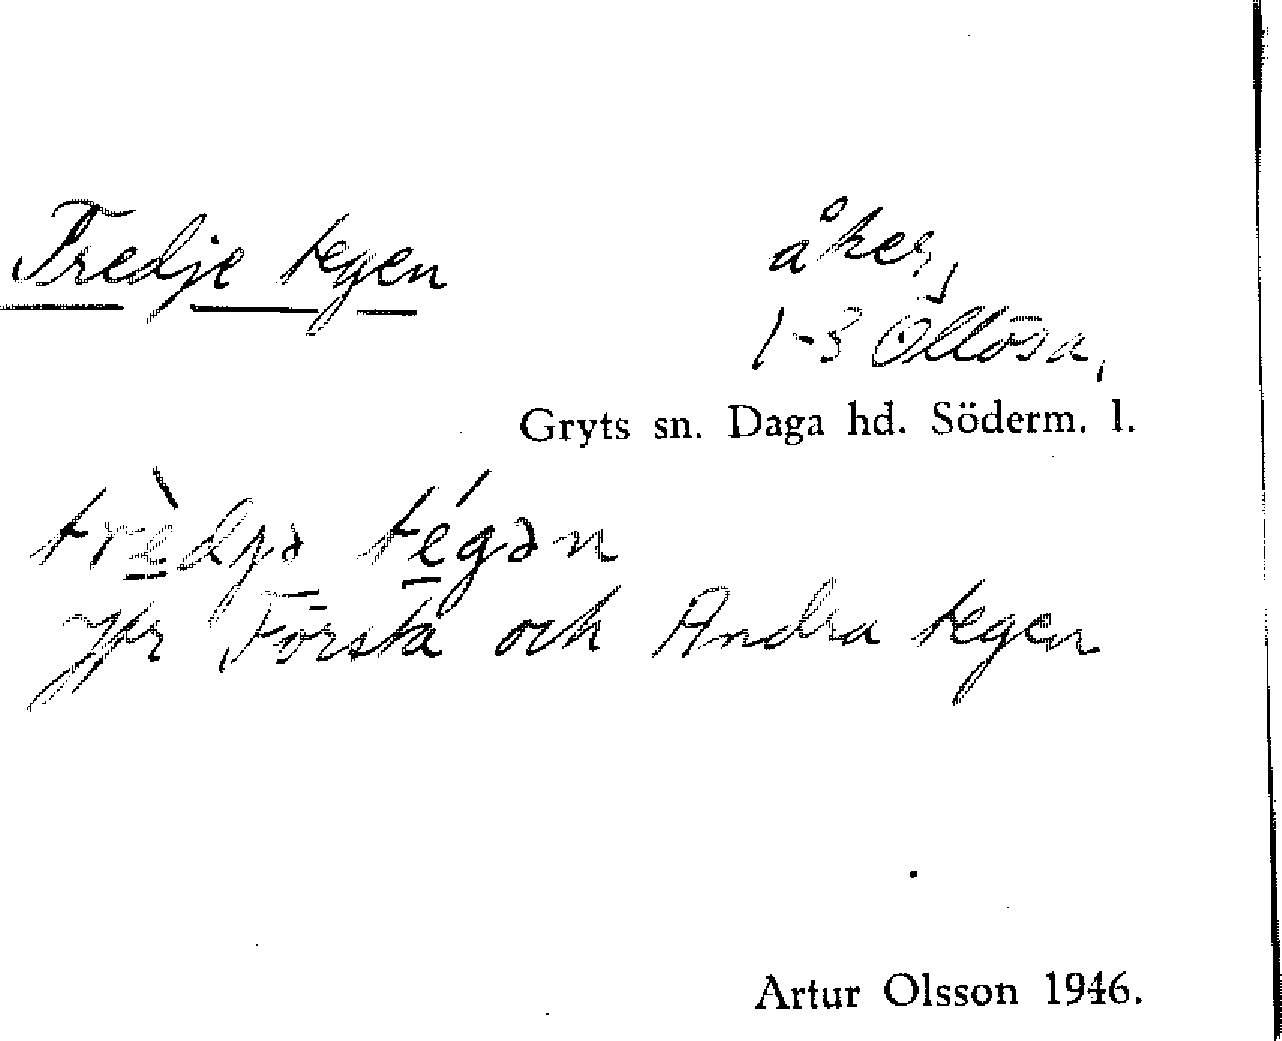 Tredje tegen
åker,
1-3 Ollösa,
Gryts sn. Daga hd. Söderm. l.
trèdjə tégən
Jfr Första och Andra tegen
Artur Olsson 1946.